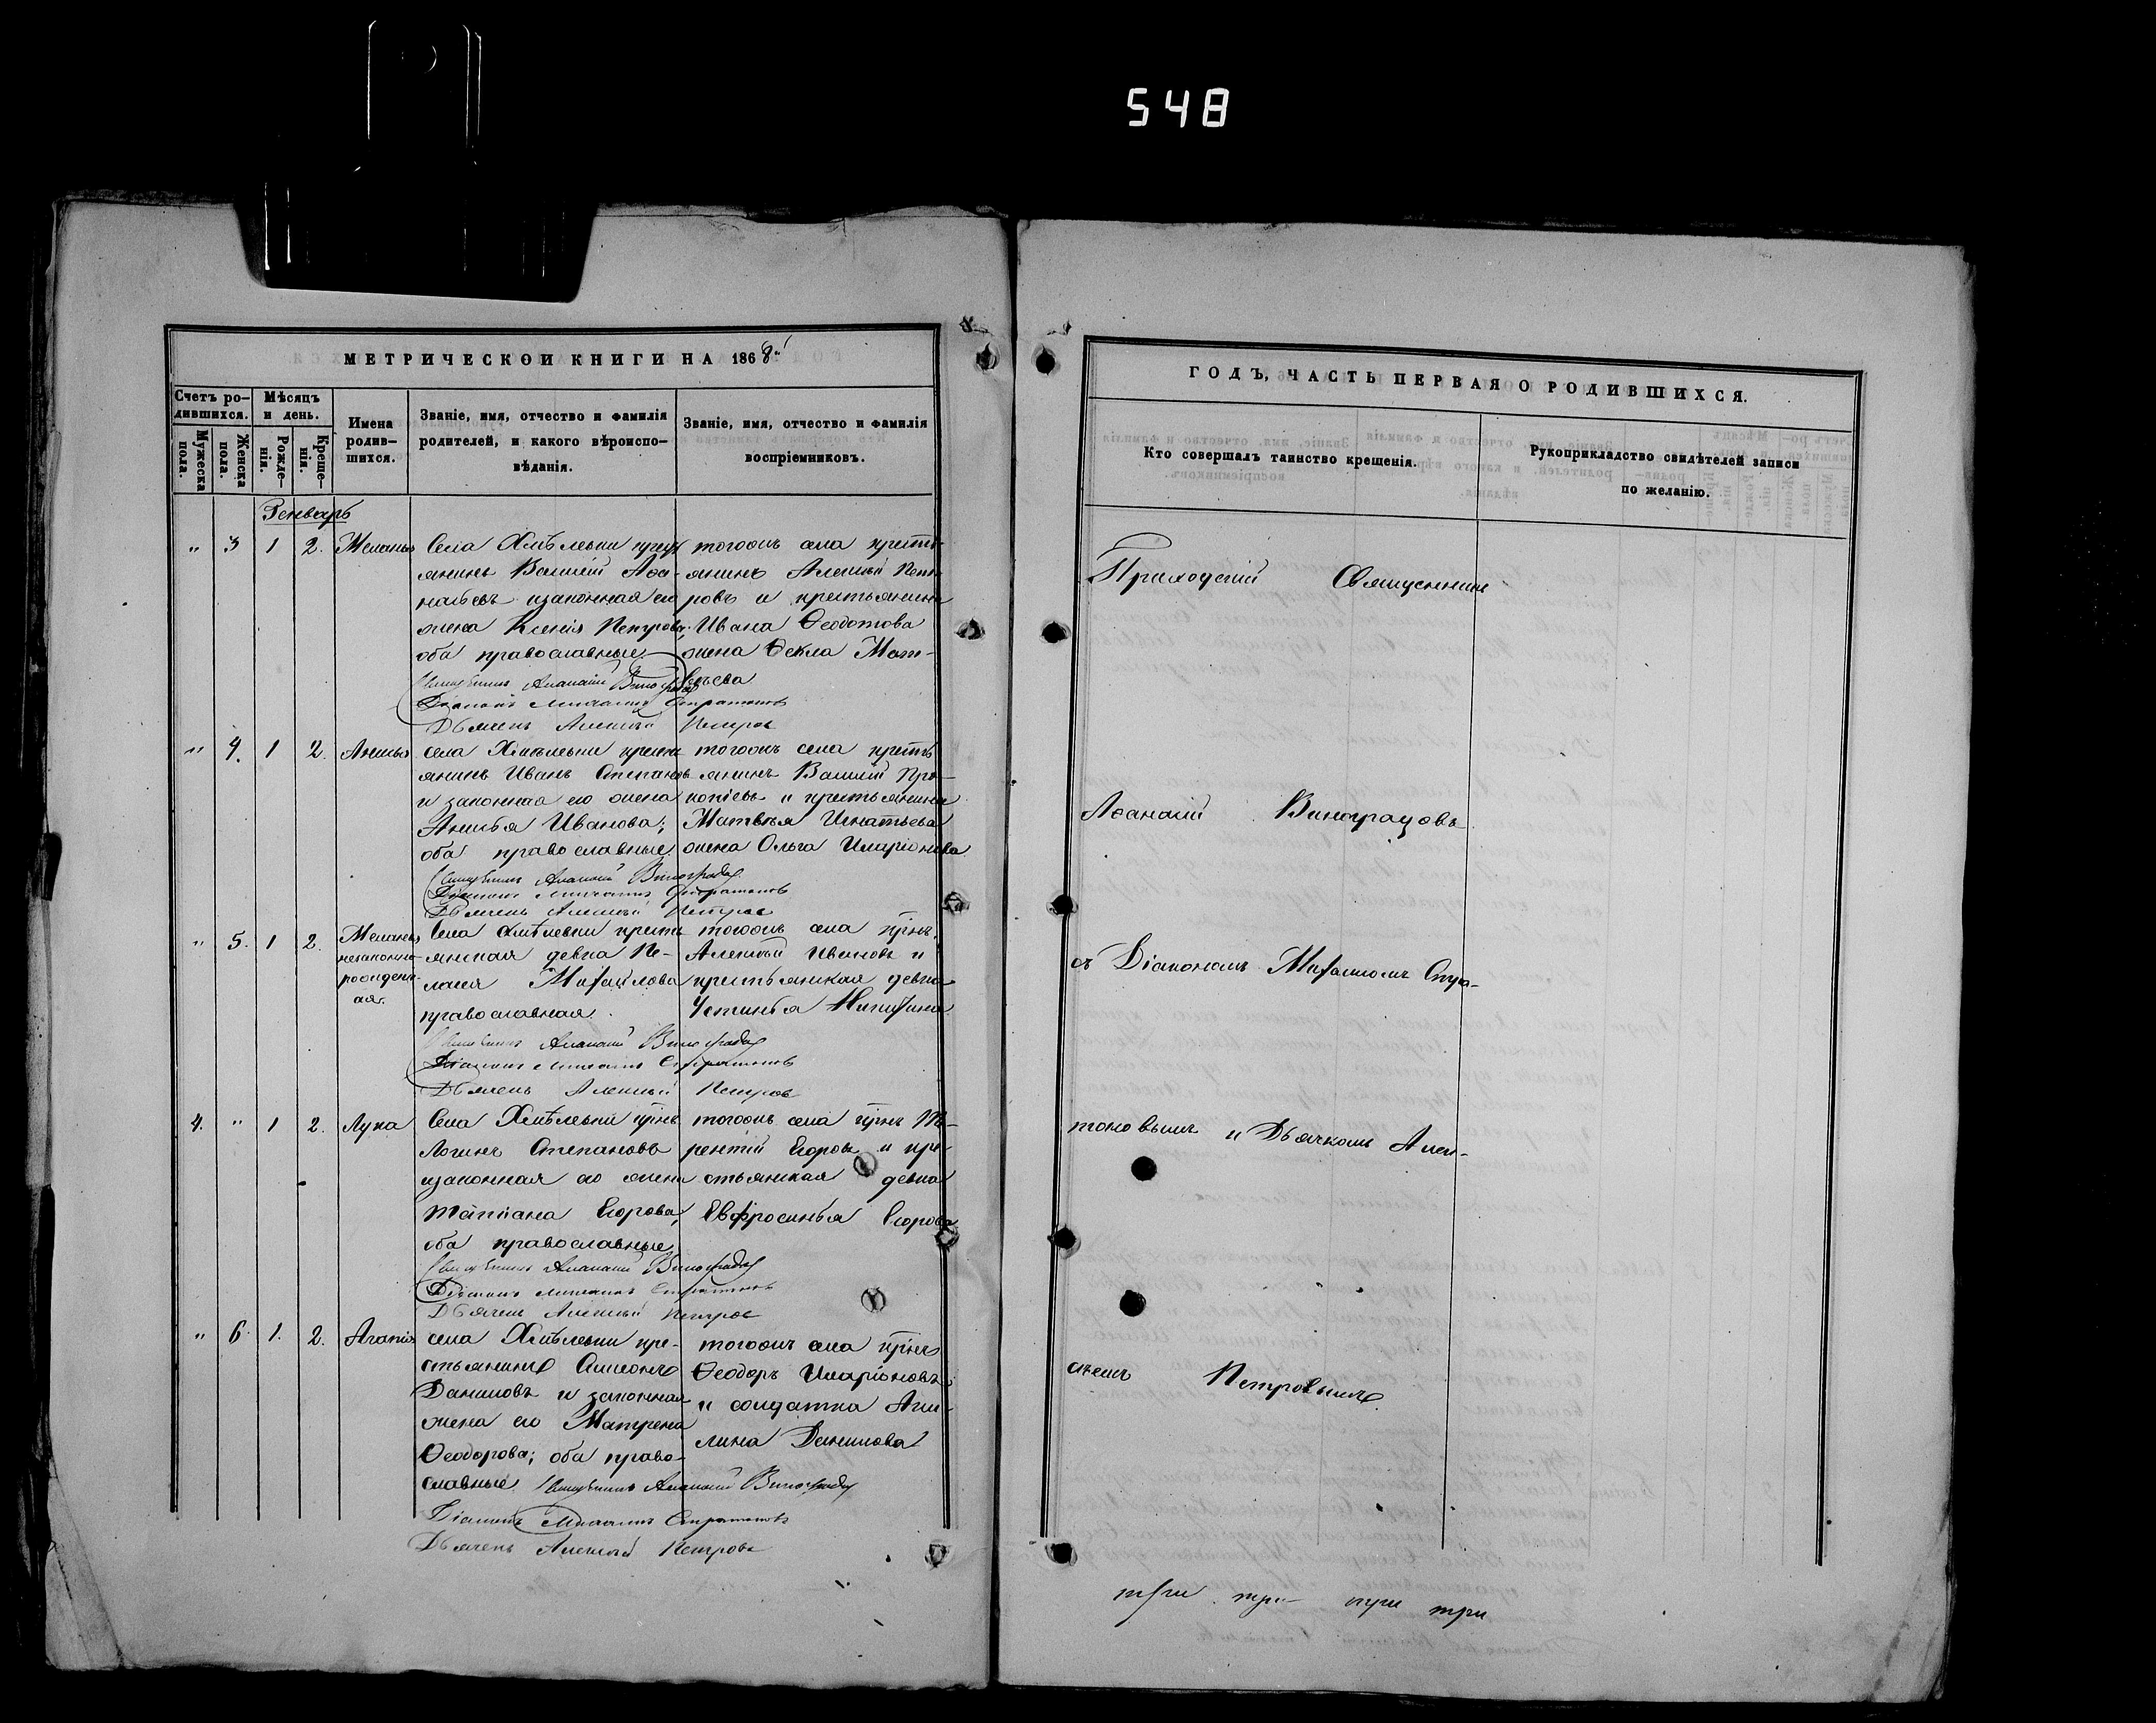 548
МЕТРИЧЕСКОЙ КНИГИ НА 1868й
Счетъ ро-
дившихся.
Мужеска
пола.
Женска
пола.
Мѣсяцъ
и день.
Рожде-
нія.
Креще-
нія.
Имена
родив-
шихся.
Званіе, имя, отчество и фамилія
родителей, и какого вѣроиспо-
вѣданія.
Званіе, имя, отчество и фамилія
воспріемниковъ.
Генварь
" 3 1 2. Меланья
Села Хмѣлевки крест
янинъ Василій Афа-
насьевъ изаконная его
жена Ксенія Петрова;
оба православные
тогожъ села кресть
янинъ Алексѣй Пет
ровъ и крестьянина
Ивана Ѳеодотова
жена Ѳекла Мат-
вѣева
Священникъ Афанасій Виноградовъ
Діаконъ Михаилъ Стратоновъ
Дьячекъ Алексѣй Петровъ
" 4. 1 2. Анисья
села Хмѣлевки кресть
янинъ Иванъ Степановъ
и законная его жена
Анисья Иванова;
оба православные
тогожъ села кресть
янинъ Василій Про-
копіевъ и крестьянина
Матвѣя Игнатьева
жена Ольга Иларіонова
Священникъ Афанасій Виноградовъ
Діаконъ Михаилъ Стратоновъ
Дьячекъ Алексѣй Петровъ
" 5. 1 2. Меланья
незаконно-
рожден-
ая.
Села Хмѣлевки кресть
янская девка Пе-
лагея Михайлова
православная.
тогожъ села крнъ
Алексѣй Ивановъ и
крестьянская девка
Устинья Никитина
Священникъ Афанасій Виноградовъ
Діаконъ Михаилъ Стратоновъ
Дьячекъ Алексѣй Петровъ
4. " 1 2. Лука
Села Хмѣлевки крнъ
Логинъ Степановъ
изаконная его жена
Татіана Егорова,
оба православные
тогожъ села крнъ Те-
рентій Егоровъ и кре-
стьянская девка
Евфросинья Егорова
Священникъ Афанасій Виноградовъ
Діаконъ Михаилъ Стратоновъ
Дьячекъ Алексѣй Петровъ
" 6. 1. 2. Агапія
села Хмѣлевки кре-
стьянинъ Симеонъ
Даниловъ и законная
жена его Матрена
Ѳеодорова; оба право-
славные
тогожъ села крнъ
Ѳеодоръ Иларіоновъ
и солдатка Аки-
лина Данилова
Священникъ Афанасій Виноградовъ
Діаконъ Михаилъ Стратоновъ
Дьячекъ Алексѣй Петровъ
ГОДЪ, ЧАСТЬ ПЕРВАЯ О РОДИВШИХСЯ.
Кто совершалъ таинство крещенія.
Рукоприкладство свидѣтелей записи
по желанію.
Приходскій Священникъ
Афанасій Виноградовъ
съ Діакономъ Михаиломъ Стра-
тоновымъ и Дьячкомъ Алек-
сѣемъ Петровымъ
три три три три